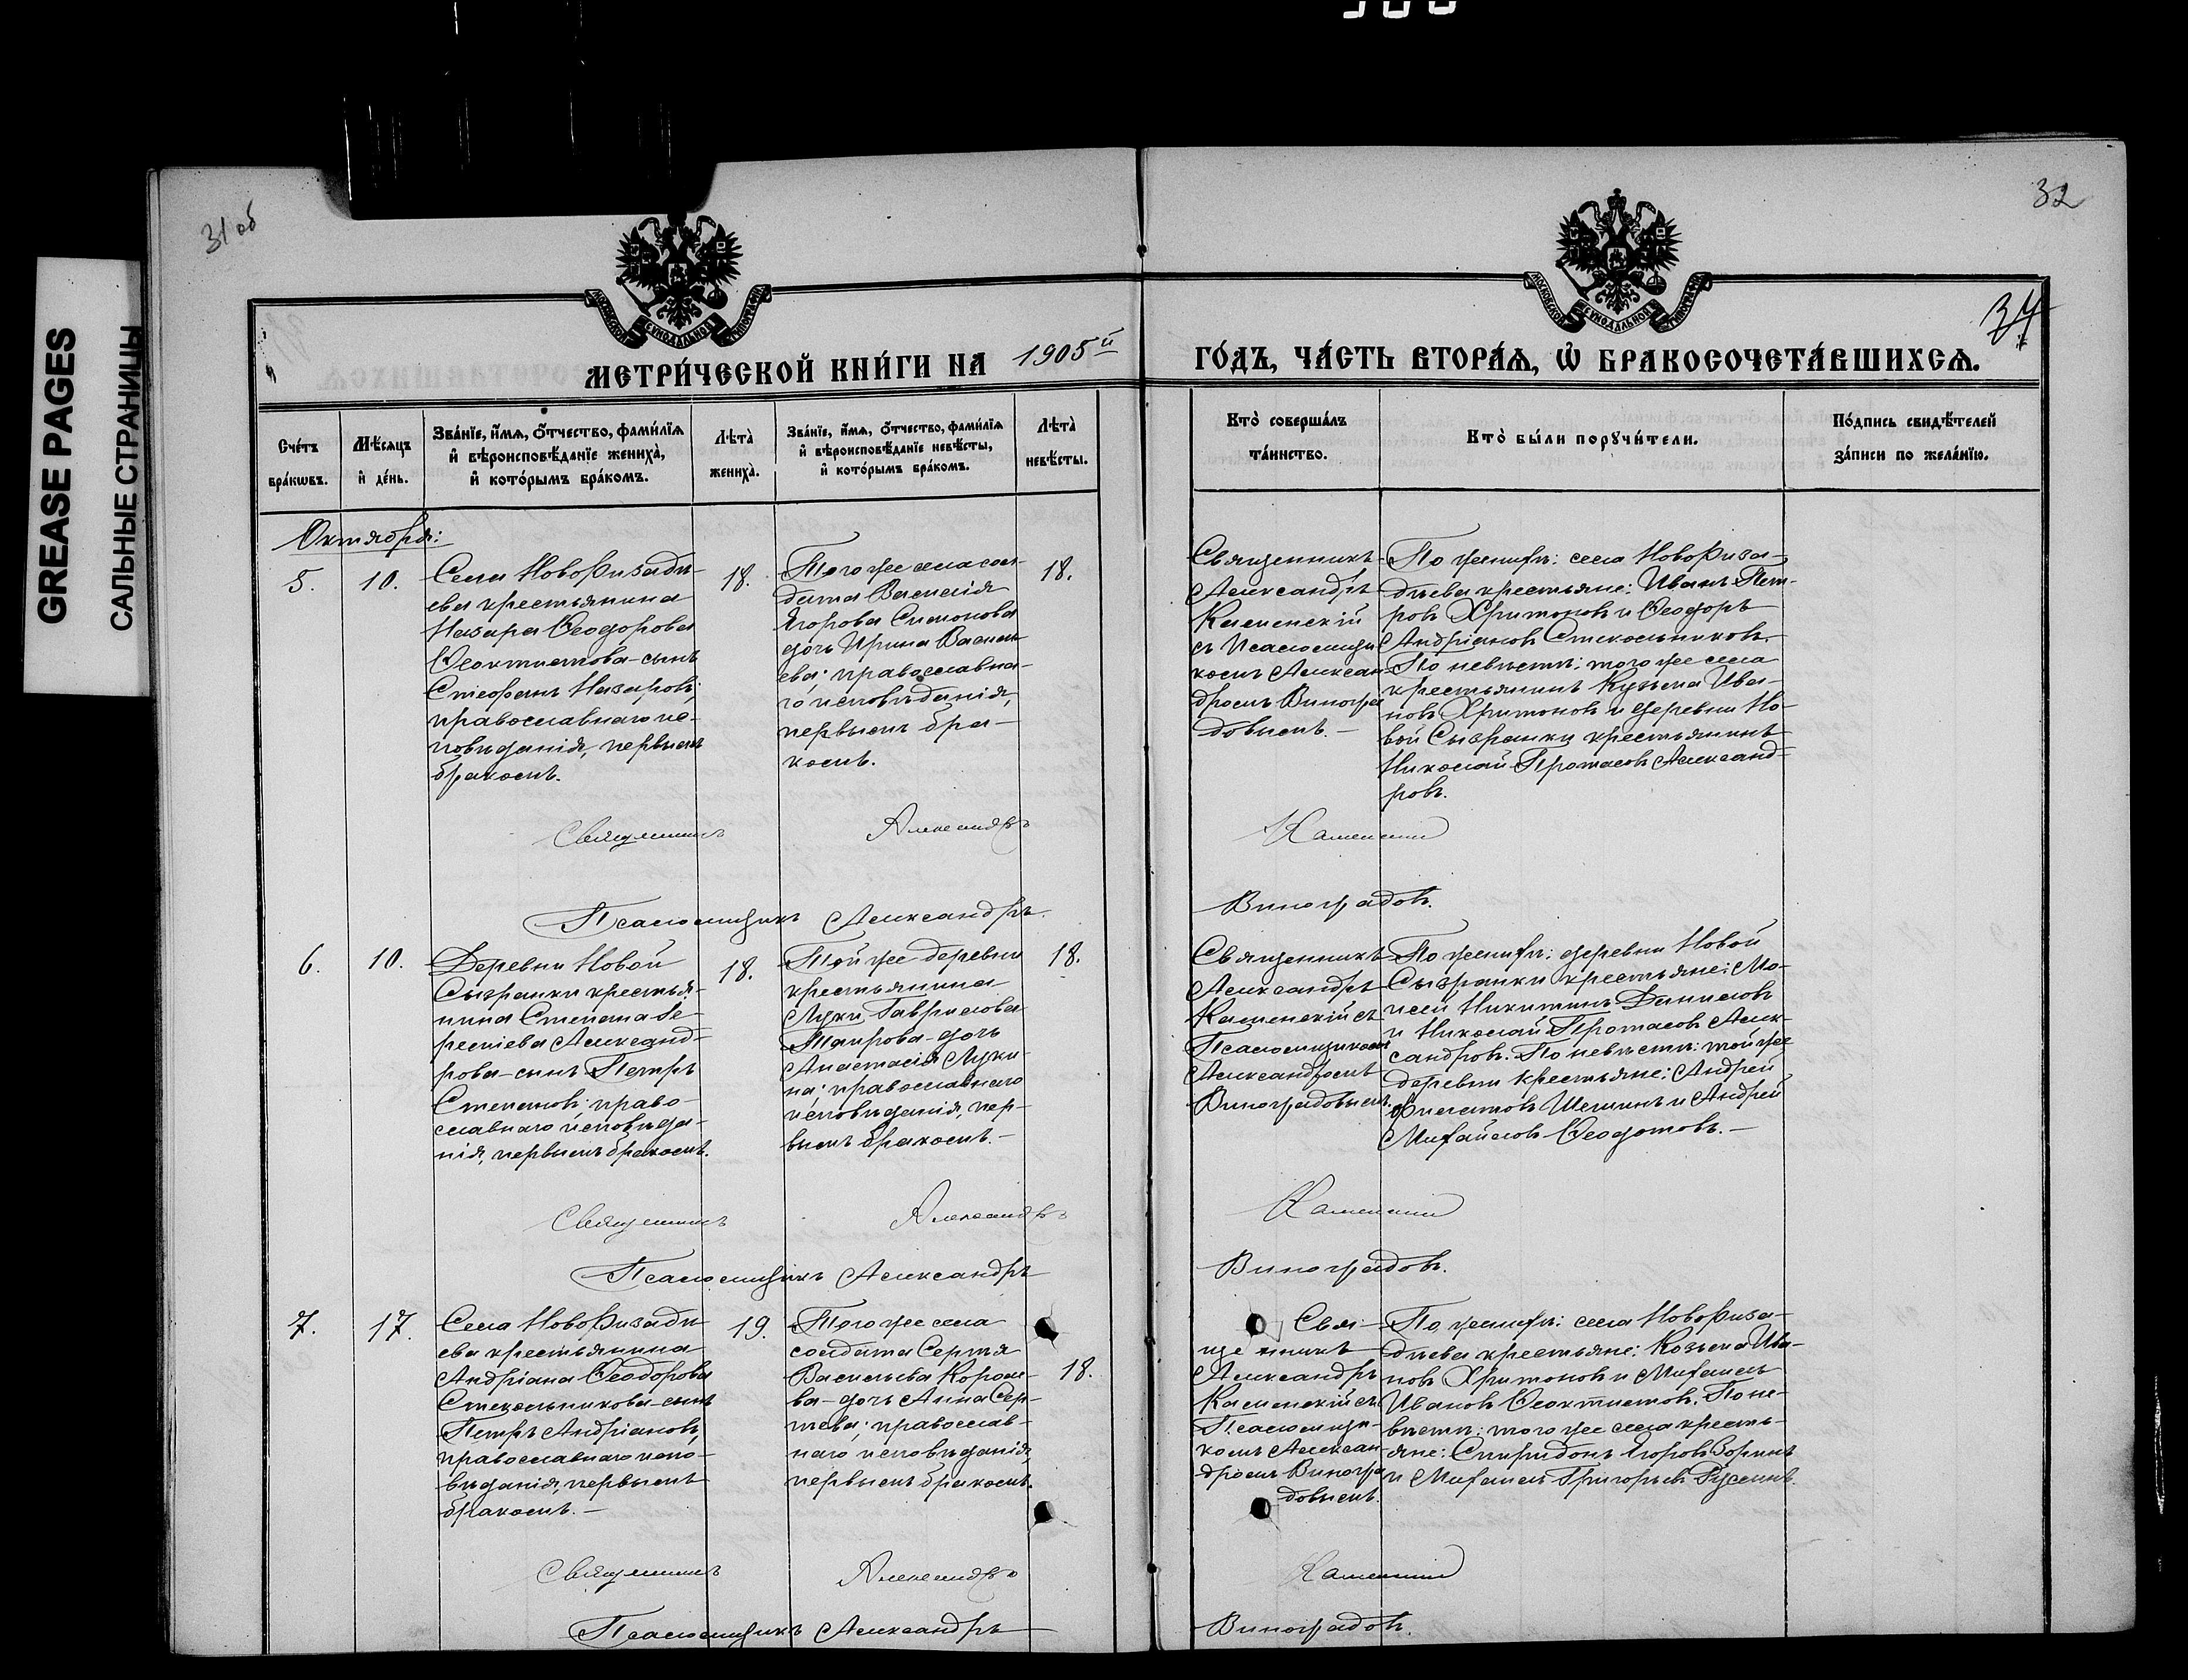 GREASE PAGES
САЛЬНЫЕ СТРАНИЦЫ
31 об
32
34
МОСКОВСКОЙ СѴНОДАЛЬНОЙ ТИПОГРАФІИ
МОСКОВСКОЙ СѴНОДАЛЬНОЙ ТИПОГРАФІИ
МЕТРИ́ЧЕСКОЙ КНИ́ГИ НА 1905й ГО́ДЪ, ЧА́СТЬ ВТОРА́Ѧ, Ѽ БРАКОСОЧЕТА́ВШИХСѦ.
Сче́тъ
бра́кѡвъ.
Мѣ́сѧцъ
и҆ де́нь.
Зва́нїе, и҆́мѧ, ѻ҆́тчество, фами́лїѧ
и҆ вѣроисповѣ́данїе жениха̀,
и҆ кото́рымъ бра́комъ.
Лѣ́та
жениха̀.
Зва́нїе, и҆́мѧ, ѻ҆́тчество, фами́лїѧ
и҆ вѣроисповѣ́данїе невѣ́сты,
и҆ кото́рымъ бра́комъ.
Лѣ́та
невѣ́сты.
Кто̀ соверша́лъ
та́инство.
Кто̀ бы́ли порꙋчи́тели.
По́дпись свидѣ́телей
за́писи по жела́нїю.
Октября:
5.
10.
Села Новофизади-
ева крестьянина
Назара Ѳеодорова
Ѳеоктистова-сынъ
Стефанъ Назаровъ;
православнаго ис-
повѣданія, первымъ
бракомъ.
18.
Того же села сол-
дата Василія
Егорова Симонова
дочь Ирина Василь-
ева; православна-
го исповѣданія,
первымъ бра-
комъ.
18.
Священникъ
Александръ
Каменскій
съ Псаломщи
комъ Алексан
дромъ Виногра
довымъ.-
По женихѣ: села Новофиза-
діева крестьяне: Иванъ Пет-
ровъ Хритоновъ и Ѳеодоръ
Андріановъ Стекольниковъ.
По невѣстѣ: того же села
крестьянинъ Кузьма Ива-
новъ Хритоновъ и деревни Но-
вой Сызранки крестьянинъ
Николай Протасовъ Александ-
ровъ.
Священникъ Александръ Каменскій
Псаломщикъ Александръ Виноградовъ.
6.
10.
Деревни Новой
Сызранки крестья-
нина Степана
Александ-
рова-сынъ Петръ
Степановъ; право-
славнаго исповѣда-
нія, первымъ бракомъ.
18.
Той же деревни
крестьянина
Луки Гаврилова
Таирова-дочь
Анастасія Луки-
на; православнаго
исповѣданія, пер-
вымъ бракомъ.-
18.
Священникъ
Александръ
Каменскій съ
Псаломщикомъ
Александромъ
Виноградовымъ.
По женихѣ: деревни Новой
Сызранки крестьяне: Мо-
исей Никитинъ Даниловъ
и Николай Протасовъ Алек-
сандровъ. По невѣстѣ: той же
деревни крестьяне: Андрей
Филатовъ Шешинъ и Андрей
Михайловъ Ѳеодотовъ.-
Священникъ Александръ Каменскій
Псаломщикъ Александръ Виноградовъ.
7.
17.
Села Новофизади
ева крестьянина
Андріана Ѳеодорова
Стекольникова-сынъ
Петръ Андріановъ,
православнаго испо-
вѣданія, первымъ
бракомъ.-
19.
Того же села
солдата Сергѣя
Васильева Короле-
ва-дочь Анна Сер-
гѣева; православ-
наго исповѣданія,
первымъ бракомъ.
18.
Свя-
ще нникъ
Александръ
Каменскій съ
Псаломщи-
комъ Алексан
дромъ Виногра
довымъ.
По женихѣ: села Новофиза-
діева крестьяне: Козьма Ива-
новъ Хритоновъ и Михаилъ
Ивановъ Ѳеоктистовъ. По не-
вѣстѣ: того же села кресть-
яне: Спиридонъ Егоровъ Зоринъ
и Михаилъ Григорьевъ Русинъ.
Священникъ Александръ Каменскій
Псаломщикъ Александръ Виноградовъ.